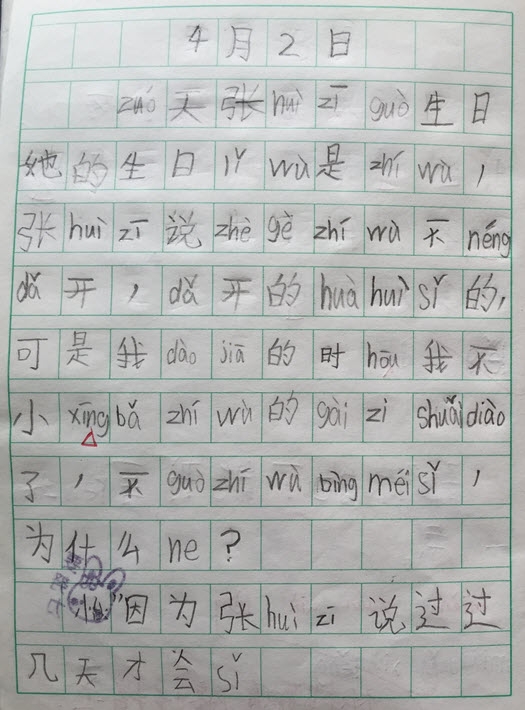 4月2日
zuó天张huì zī guò生日
她的生日lǐ wù是zhí wù，
张huì zī说zhè gè zhí wù不néng
dǎ开，dǎ开的huà huì sǐ的，
可是我dào jiā的时hōu我不
小xīng bǎ zhí wù的gài zi shuǎi diào
了，不guò zhí wù bìng méi sǐ，
为什么ne？
"因为张huì zī说过过
几天才会sǐ